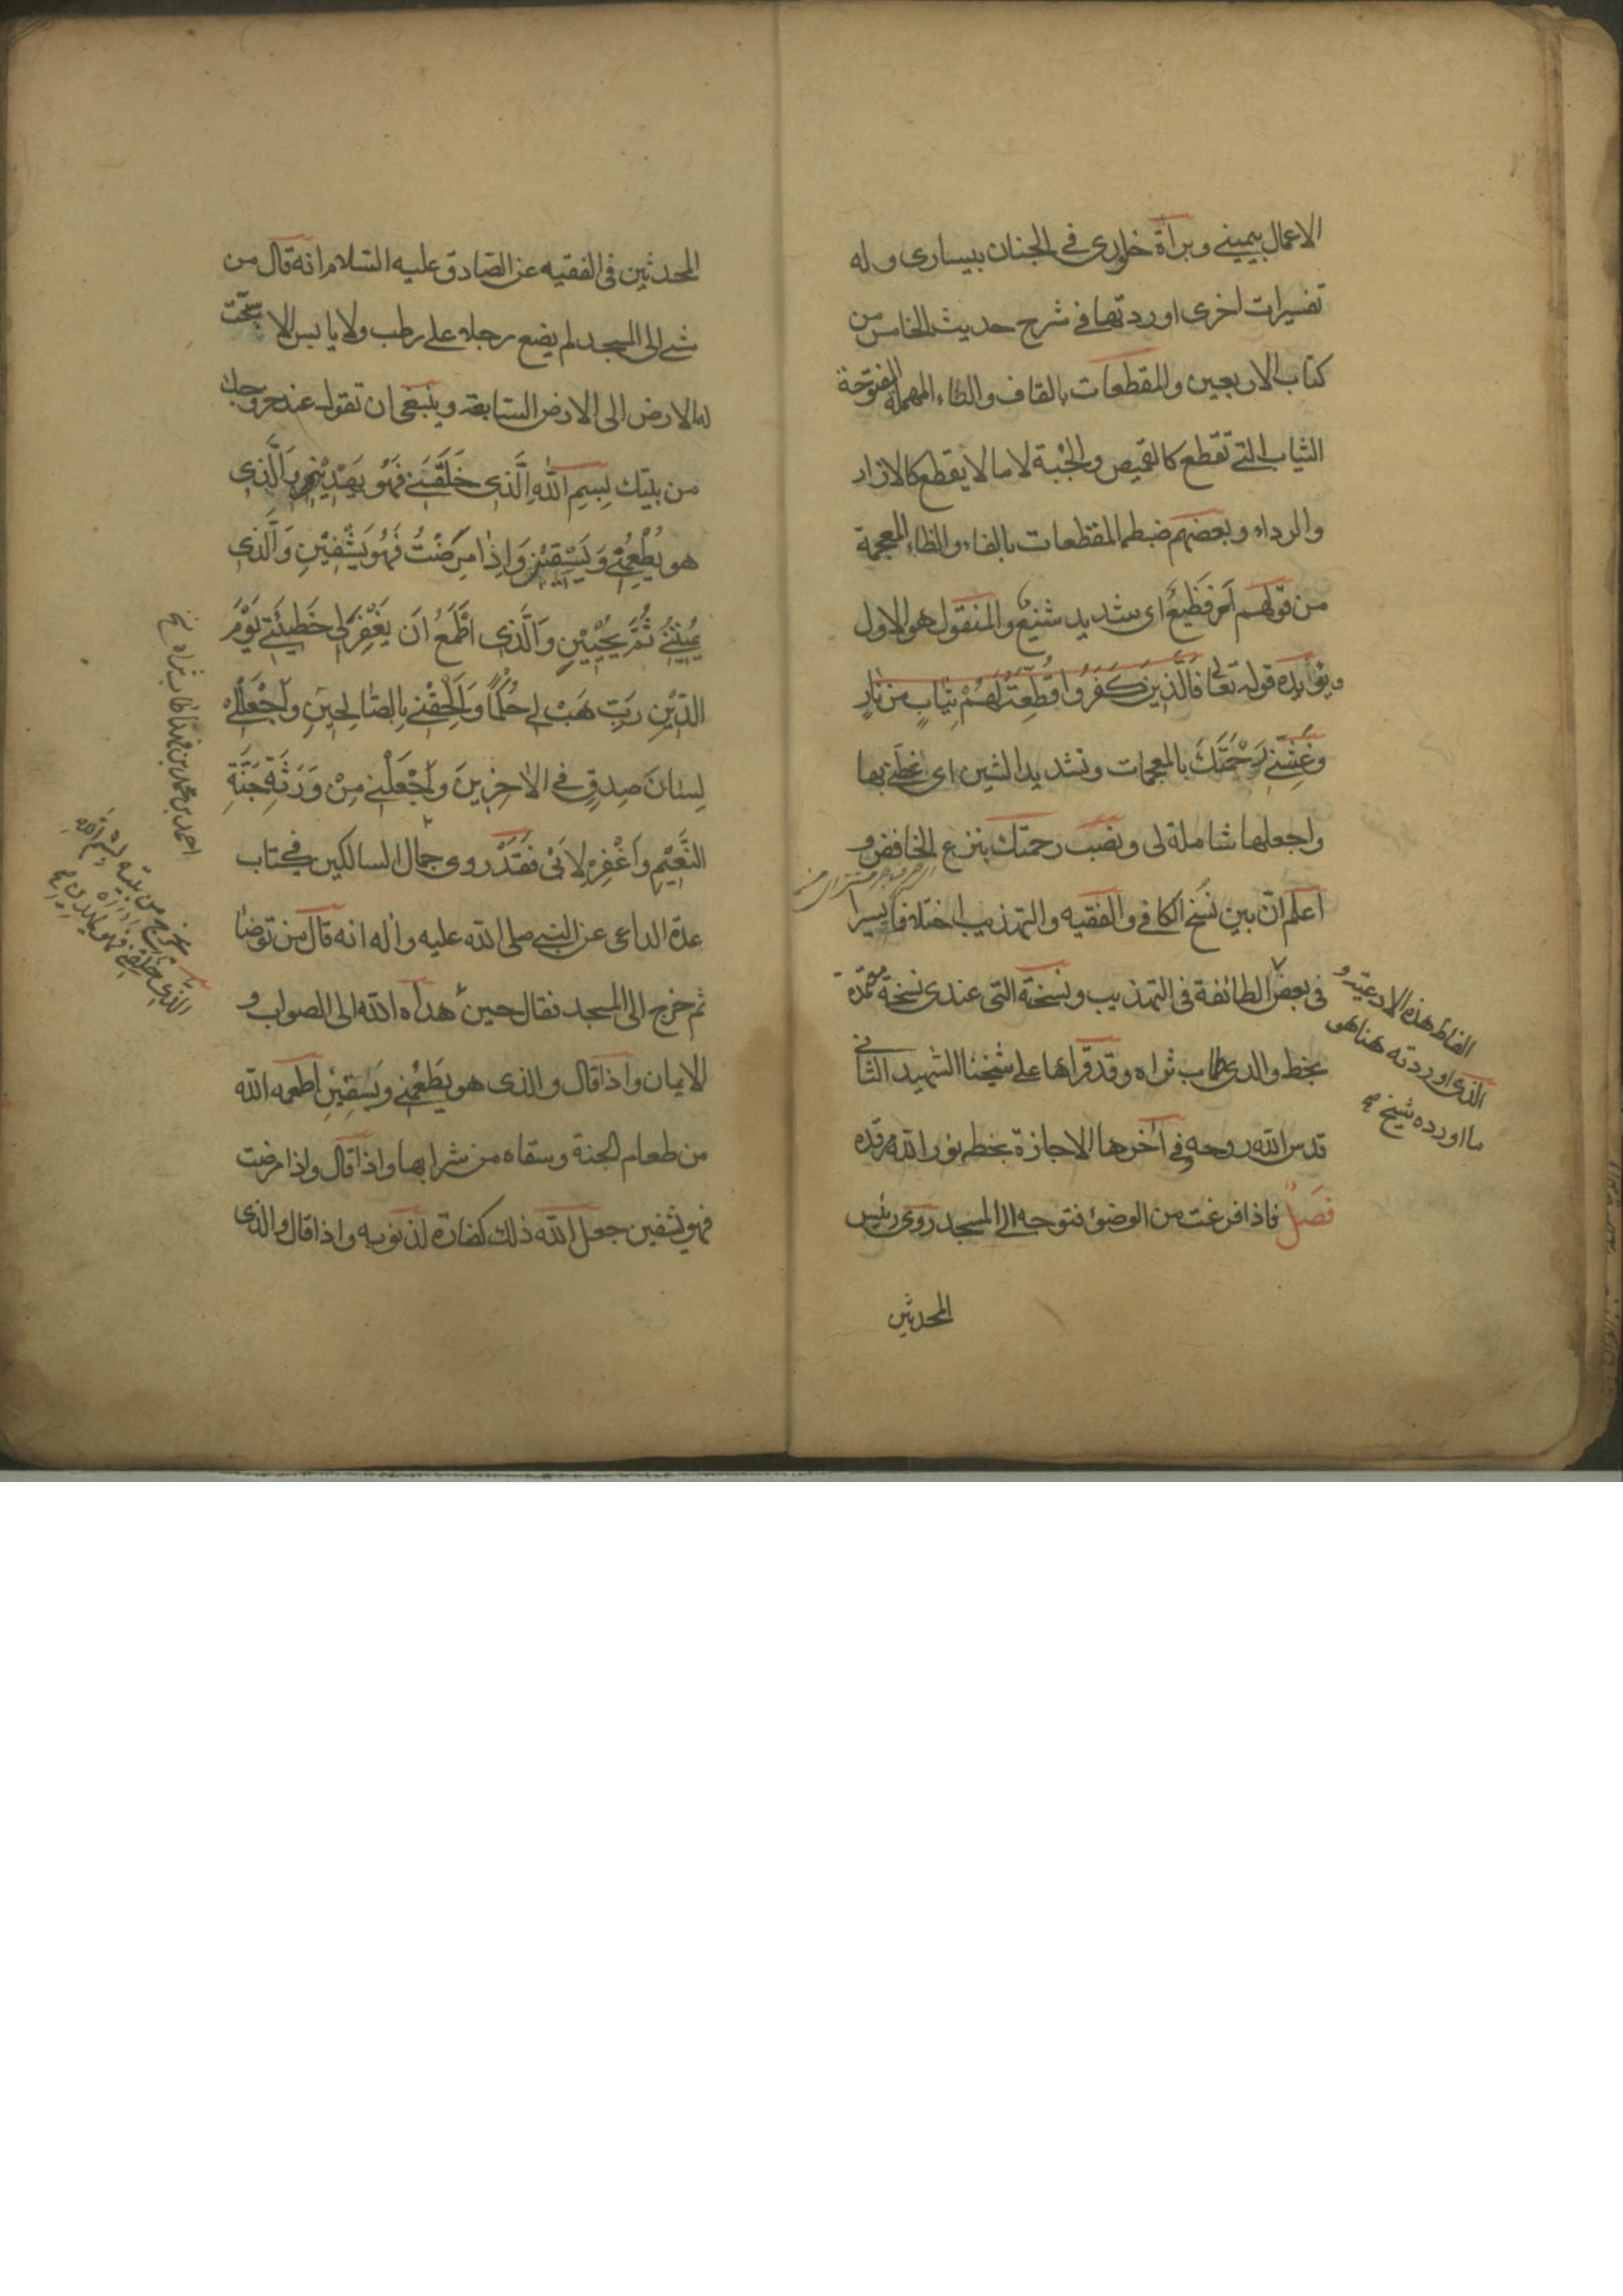 الاعمال بيميني وبرأة خلودى في الجنان بيسارى وله
تفسيرات اخرى اوردتها في شرح حديث الخامس من
كتاب الاربعين والمقطعات بالقاف والطاء المهملة المفتوحة
الثياب التي تقطع كالقميص والجبة لا ما لا يقطع كالازار
والرداء وبعضهم ضبطه المفظعات بالفاء والظاء المعجمة
من قولهم امر فظيع اى شديد شنيع والمنقول هو الاول
ويؤيده قوله تعالى فَالَّذِينَ كَفَرُوا قُطِّعَتْ لَهُمْ ثِيَابٌ مِن نَارٍ
وغَشِّنِي رَحْمَتَكَ بالمعجمات وتشديد الشين اى غطني بها
واجعلها شاملة لى ونصب رحمتك بنزع الخافض و
اعلم انّ بين نُسخ الكافي والفقيه والتهذيب اختلافا يسيرا
في بعض الطائفة في التهذيب ونسخته التي عندى نسخة معتمدة
بخط والدى طاب ثراه وقد قرأها على شيخنا الشهيد الثاني
قدس الله روحه وفي آخرها الاجازة بخطه نور الله مرقده
فصل فاذا فرغت من الوضوء فتوجه الى المسجد روى رئيس
المحدثين
الفاظ هذه الادعية و
الذى اوردته هنا هو
ما اورده شيخ
المحدثين في الفقيه عن الصادق عليه السلام انه قال من
مشى الى المسجد لم يضع رجله على رطب ولا يابس الا سبحت
له الارض الى الارض السابعة وينبغى ان تقول عند خروجك
من بيتك بِسمِ اللهِ الَّذِى خَلَقَنِي فَهُوَ يَهْدِيْنِ وَالَّذِى
هو يُطْعِمُنِي وَيَسْقِيْنِ وَاِذَا مَرِضْتُ فَهُوَ يَشْفِيْنِ وَالَّذِى
يُمِيْتُنِي ثُمَّ يُحْيِيْنِ وَالَّذِى اَطْمَعُ اَن يَغْفِرَ لِي خَطِيئَتِي يَوْمَ
الدِّيْنِ رَبِّ هَبْ لِي حُكْمًا وَاَلْحِقْنِي بِالصَّالِحِينَ وَاجْعَلْ لِي
لِسَانَ صِدقٍ فِي الاٰخِرِينَ وَاجْعَلْنِي مِنْ وَرَثَةِ جَنَّةِ
النَّعِيْمِ وَاغْفِرْ لِاَبِي فَقَدْ روى جمال السالكين في كتاب
عدة الداعى عن النبي صلى الله عليه واله انه قال من توضأ
ثم خرج الى المسجد فقال حين هداه الله الى الصواب و
الايمان واذا قال والذى هو يُطعِمُنِي وَيَسقِيْنِ اطعمه الله
من طعام الجنة وسقاه من شرابها واذا قال واذا مرضت
فهو يشفين جعل الله ذلك كفارة لذنوبه واذا قال والذى
احمد بن محمد بن فهد طاب ثراه
يخرج من بيته بسم الله
الذى خلقني فهو يهدين